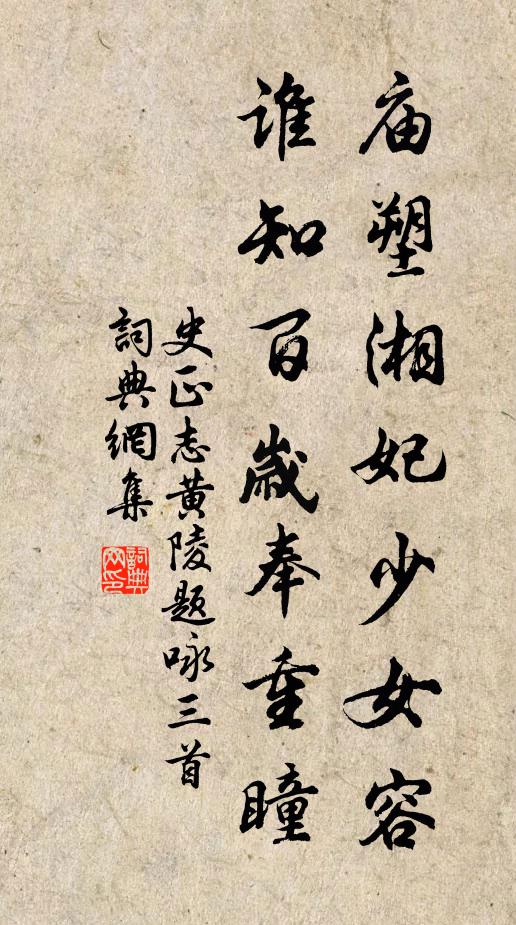 庙塑湘妃少女容
谁知百岁奉重瞳
史正志黄陵题咏三首
詞典網集
詞典网印